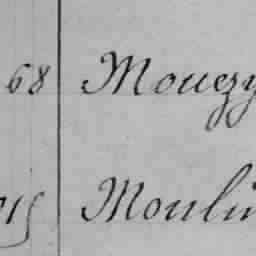 68 Mouezy
715 Moulin